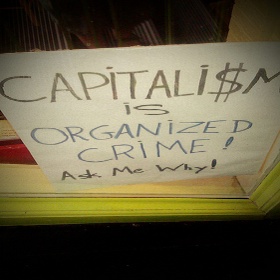 CAPiTALi$M
iS
ORGANiZED
CRiME!
Ask Me Why!